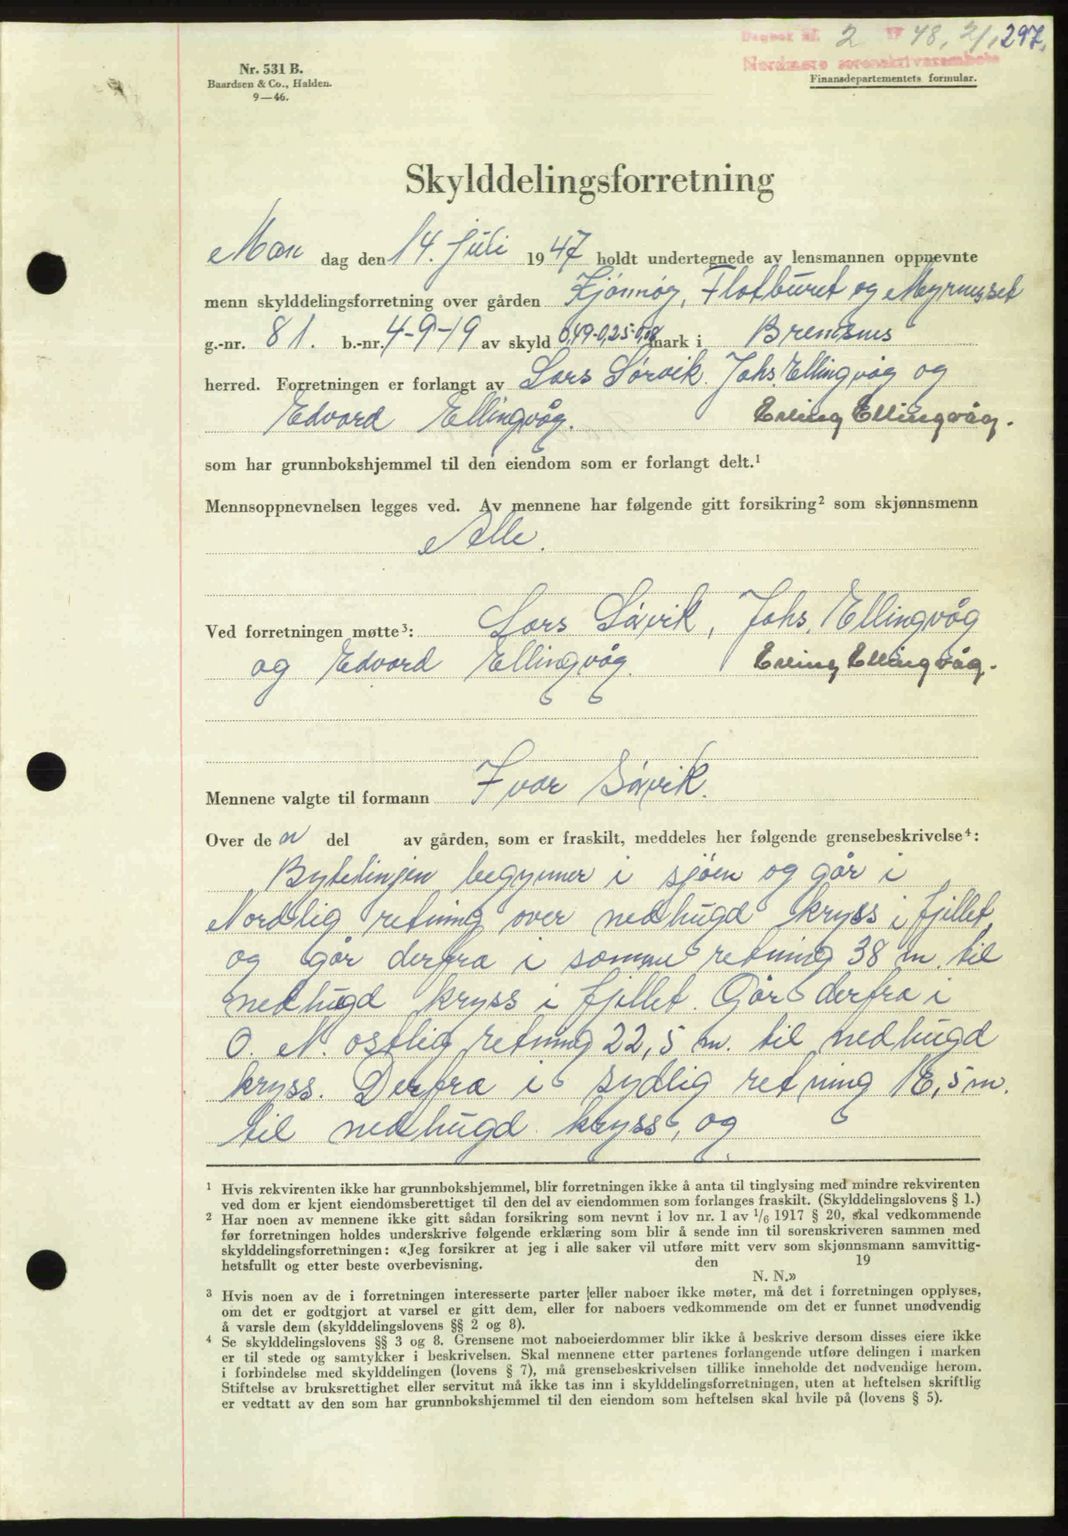 Dagbok nr. 2 19 48, 2/1, 297.
Nordmøre sorenskriverembete
Nr. 531 B.
Baardsen & Co., Halden.
9—46.
Finansdepartementets formular.
Skylddelingsforretning
Man dag den 14. juli 1947 holdt undertegnede av lensmannen oppnevnte
menn skylddelingsforretning over gården Kjønnøy, Flatburet og Myrnesset
g.-nr. 81. b.-nr. 4-9-19 av skyld 0,49-0,25-0,18 mark i Bremsnes
herred. Forretningen er forlangt av Lars Sørvik. Johs. Ellingvåg og
Edvard Ellingvåg. Erling Ellingvåg.
som har grunnbokshjemmel til den eiendom som er forlangt delt.¹
Mennsoppnevnelsen legges ved. Av mennene har følgende gitt forsikring² som skjønnsmenn
Alle.
Ved forretningen møtte³: Lars Søvik, Johs. Ellingvåg
og Edvard Ellingvåg. Erling Ellingvåg.
Mennene valgte til formann Ivar Søvik.
Over de n del av gården, som er fraskilt, meddeles her følgende grensebeskrivelse⁴:
Bytelinjen begynner i sjøen og går i
Nordlig retning over nedhugd kryss i fjillet,
og går derfra i samme retning 38 m. til
nedhugd kryss i fjillet. Går derfra i
O. N. ostlig retning 22,5 m. til nedhugd
kryss. Derfra i sydlig retning 18,5 m.
til nedhugd kryss, og
¹ Hvis rekvirenten ikke har grunnbokshjemmel, blir forretningen ikke å anta til tinglysing med mindre rekvirenten
ved dom er kjent eiendomsberettiget til den del av eiendommen som forlanges fraskilt. (Skylddelingslovens § 1.)
² Har noen av mennene ikke gitt sådan forsikring som nevnt i lov nr. 1 av 1/6 1917 § 20, skal vedkommende
før forretningen holdes underskrive følgende erklæring som blir å sende inn til sorenskriveren sammen med
skylddelingsforretningen: «Jeg forsikrer at jeg i alle saker vil utføre mitt verv som skjønnsmann samvittig-
hetsfullt og etter beste overbevisning. den 19
N. N.»
³ Hvis noen av de i forretningen interesserte parter eller naboer ikke møter, må det i forretningen opplyses,
om det er godtgjort at varsel er gitt dem, eller for naboers vedkommende om det er funnet unødvendig
å varsle dem (skylddelingslovens §§ 2 og 8).
⁴ Se skylddelingslovens §§ 3 og 8. Grensene mot naboeierdommer blir ikke å beskrive dersom disses eiere ikke
er til stede og samtykker i beskrivelsen. Skal mennene etter partenes forlangende utføre delingen i marken
i forbindelse med skylddelingen (lovens § 7), må grensebeskrivelsen tillike inneholde det nødvendige herom.
Stiftelse av bruksrettighet eller servitut må ikke tas inn i skylddelingsforretningen, uten at heftelsen skriftlig
er vedtatt av den som har grunnbokshjemmel til den eiendom som heftelsen skal hvile på (lovens § 5).